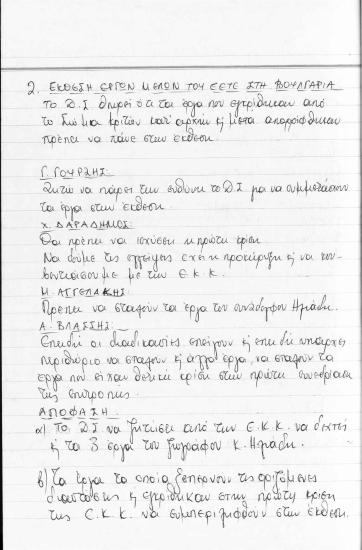 2. ΕΚΘΕΣΗ ΕΡΓΩΝ ΜΕΛΩΝ ΤΟΥ ΕΕΤΕ ΣΤΗ ΒΟΥΛΓΑΡΙΑ
Το Δ.Σ θεωρεί ότι τα έργα που εγκρίθηκαν από
το Σώμα κριτών κατ' αρχήν ή μετά απορρίφθηκαν
πρέπει να πάνε στην έκθεση.
Γ. ΓΟΥΡΖΗΣ:
Ζητά να πάρει την ευθύνη το Δ.Σ για να συμμετάσχουν
τα έργα στην έκθεση.
Χ. ΔΑΡΑΔΗΜΟΣ:
Θα πρέπει να ισχύσει η πρώτη κρίση
Να δούμε τις εγγραφές έχει η προκήρυξη ή να
με την Ε.Κ.Κ.
Μ. ΑΓΓΕΛΑΚΗΣ:
Πρέπει να σταλούν τα έργα του συναδέλφου Ηλιάδη.
Α. ΒΛΑΣΣΗΣ:
Επειδή οι διαδικασίες επείγουν ή επειδή υπάρχει
περιθώριο να σταλούν ή άλλα έργα, να σταλούν τα
έργα που είχαν θετική κρίση στην πρώτη συνεδρίαση
της επιτροπής.
ΑΠΟΦΑΣΗ:
α) Το Δ.Σ να ζητήσει από την Ε.Κ.Κ να δεχτεί
ή τα 3 έργα του ζωγράφου Κ. Ηλιάδη.
β) Τα έργα τα οποία ξεπερνούν τις οριζόμενες
διαστάσεις ή εγκρίθηκαν στην πρώτη κρίση
της Ε.Κ.Κ. να συμπεριληφθούν στην έκθεση.